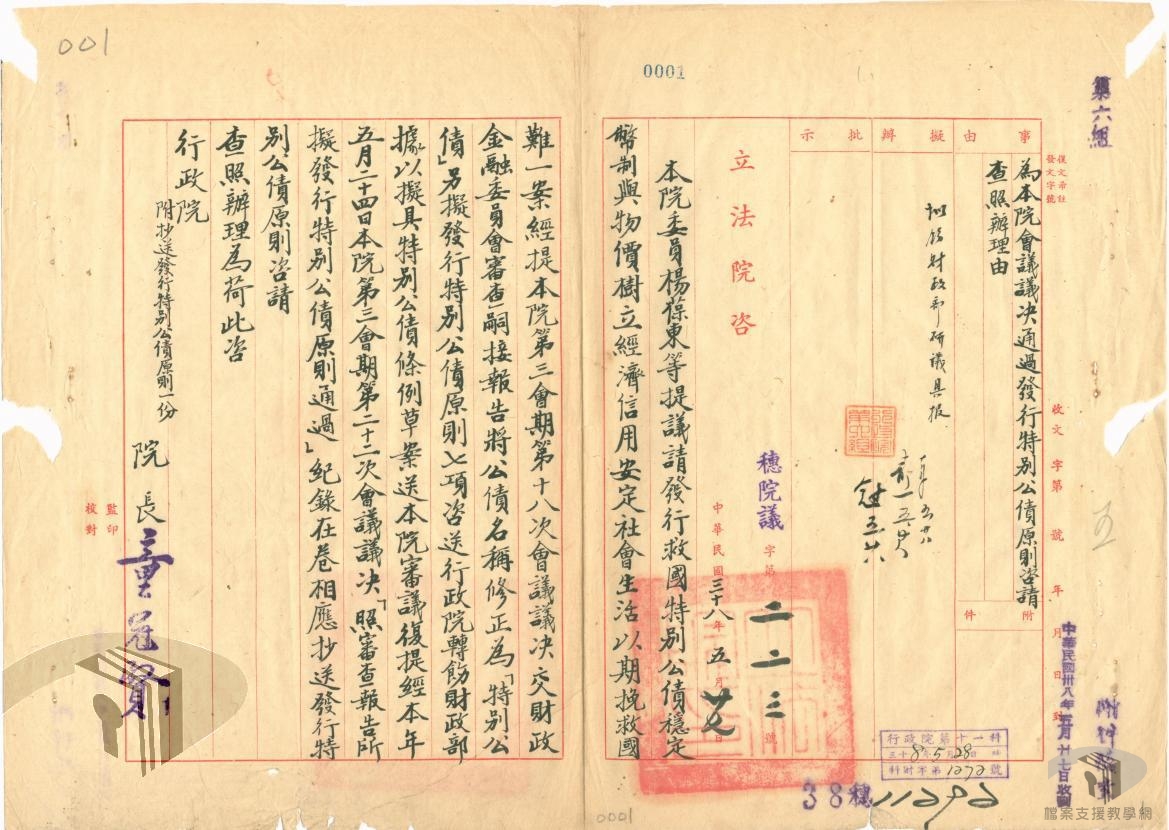 001
0001
第六組
復文希註
發文字號
收文 字第 號 年 月 日 到
中華民國卅八年五月廿七日收到
事由
為本院會議議決通過發行特別公債原則咨請
查照辦理由
附件
擬辦
擬飭財政部研議具報
批示
立法院咨
穗院議 字第 二二三 號
中華民國三十八年五月 日
本院委員楊葆東等提議請發行救國特別公債穩定
幣制與物價樹立經濟信用安定社會生活以期挽救國
難一案經提本院第三會期第十八次會議議決交財政
金融委員會審查嗣接報告將公債名稱修正為「特別公
債」另擬發行特別公債原則七項咨送行政院轉飭財政部
據以擬具特別公債條例草案送本院審議復提經本年
五月二十四日本院第三會期第二十二次會議議決「照審查報告所
擬發行特別公債原則通過」紀錄在卷相應抄送發行特
別公債原則咨請
查照辦理為荷此咨
行政院
附抄送發行特別公債原則一份
院長童冠賢
監印
校對
行政院第十一科
三十8年5月28日 時
科財字第1272號
38穗11292
0001
檔案支援教學網